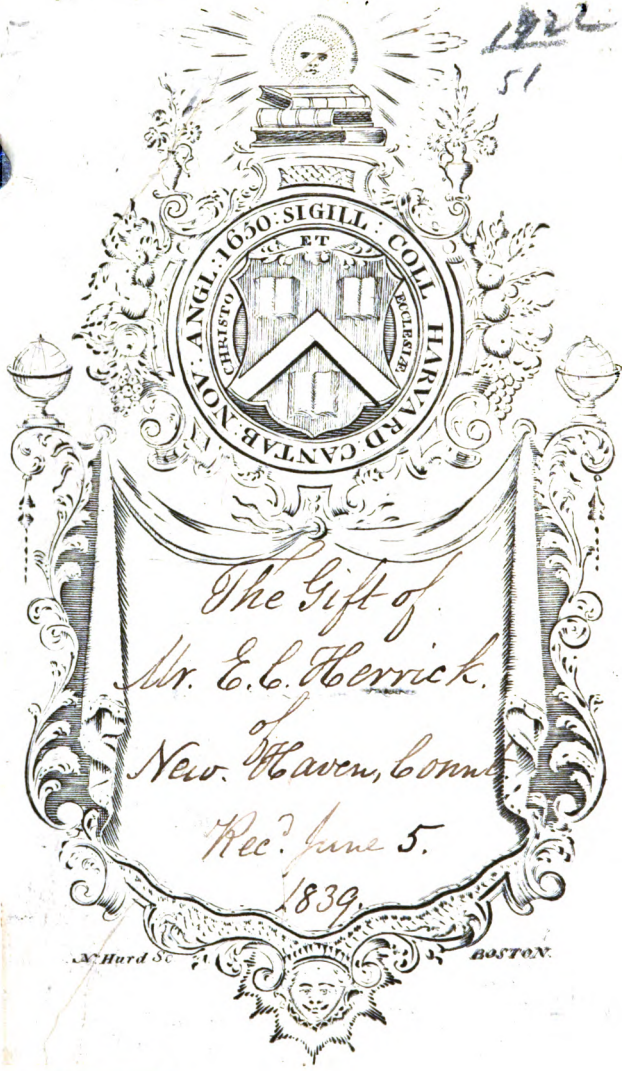 1922
51
SIGILL · COLL HARVARD · CANTAB · NOV ANGL · 1650 :
CHRISTO ET ECCLESIÆ
The Gift of
Mr. E. C. Herrick.
of
New. Haven, Connt
Recd. June 5.
1839.
N. Hurd Sc
BOSTON.